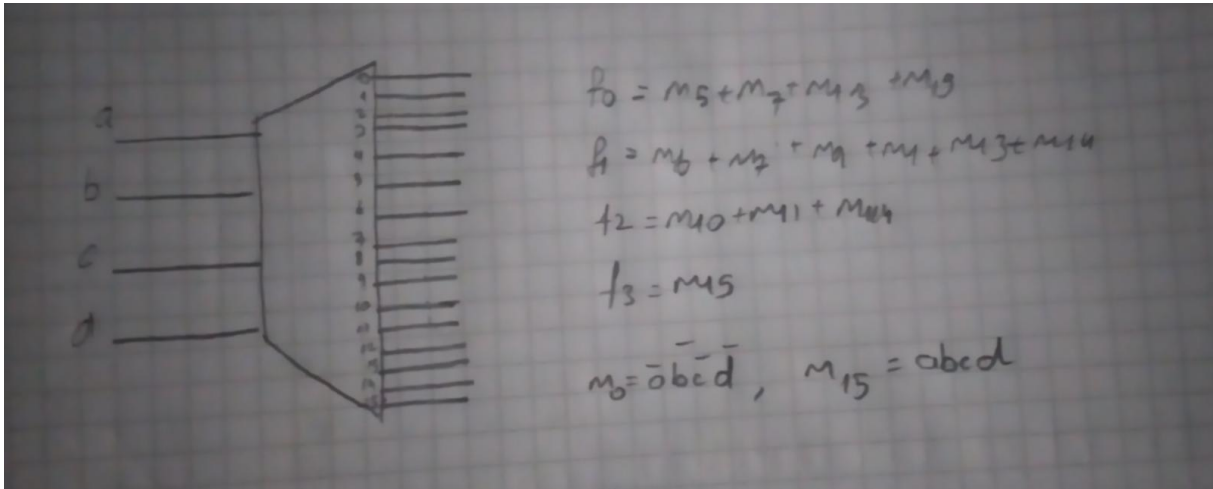 a
b
c
d
0
1
2
3
4
5
6
7
8
9
10
11
12
13
f0 = m5 + m7 + m13 + m15
f1 = m6 + m7 + m9 + m11 + m13 + m14
f2 = m10 + m11 + m14
f3 = m15
m0 = a̅b̅c̅d̅, m15 = abcd